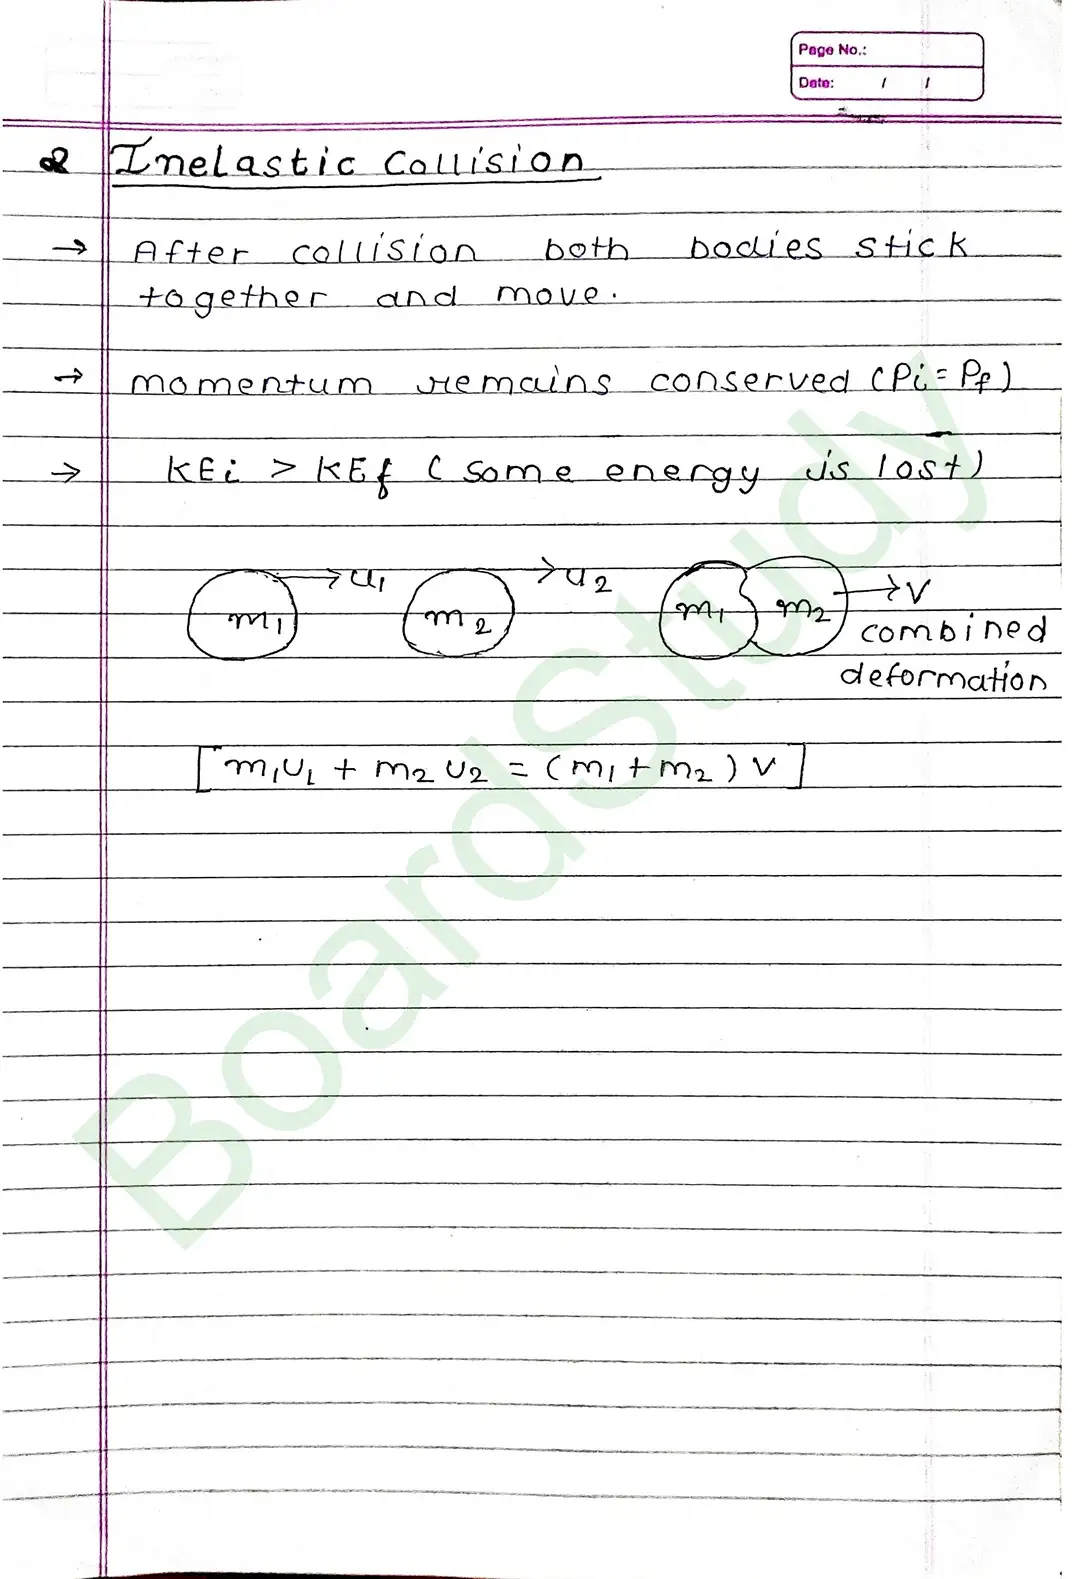 Page No.:
Date: / /
2 Inelastic Collision
→ After collision both bodies stick
together and move.
→ momentum remains conserved (Pi = Pf)
→ KEi > KEf (some energy is lost)
m1 → u1 m2 → u2 m1 m2 → v
combined
deformation
[m1u1 + m2u2 = (m1 + m2) v]
BoardStudy